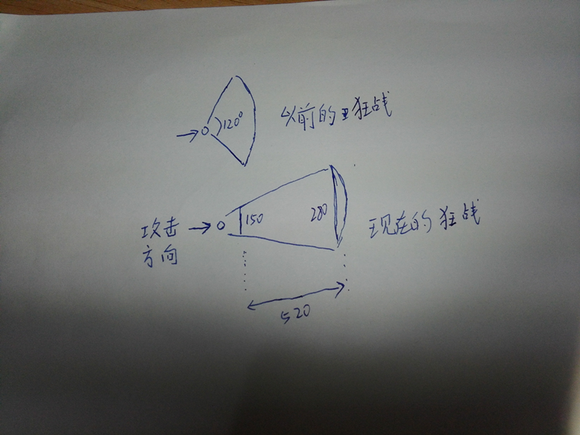 120° 以前的狂战
150 280 现在的狂战
攻击
方向
520